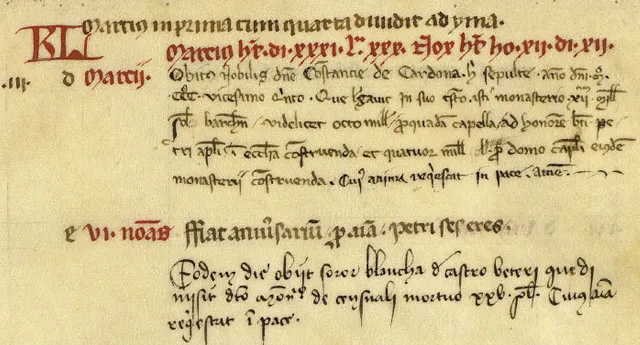 Marcius in prima cum quarta diuidit ad yma.
KL Marcius ht. di. XXXI. L. XXX. Nox ht. ho. XII. di. XII.
.III. d Marcii. Obitus Nobilis dne Costancie de Cardona. h sepulte. ano dni. m.
CCC. vicesimo quinto. Que legauit in suo testo. isti monasterio XII. mill
sol. barchn. videlicet octo mill. pro quadam capella. ad honore bti pe
tri apli. i ecchia construenda. et quatuor mill pro domo capli eiusdem
monasterii construenda. Cui anima reqescat in pace. amen.
e VI. nonas ffiat aniuersariu p aia. petri ses eres.
Eodem die obijt soror blancha d castro veteri que di
misit dto mon. de censuali mortuo xxv. sol. Cuius aia
reqescat i pace.